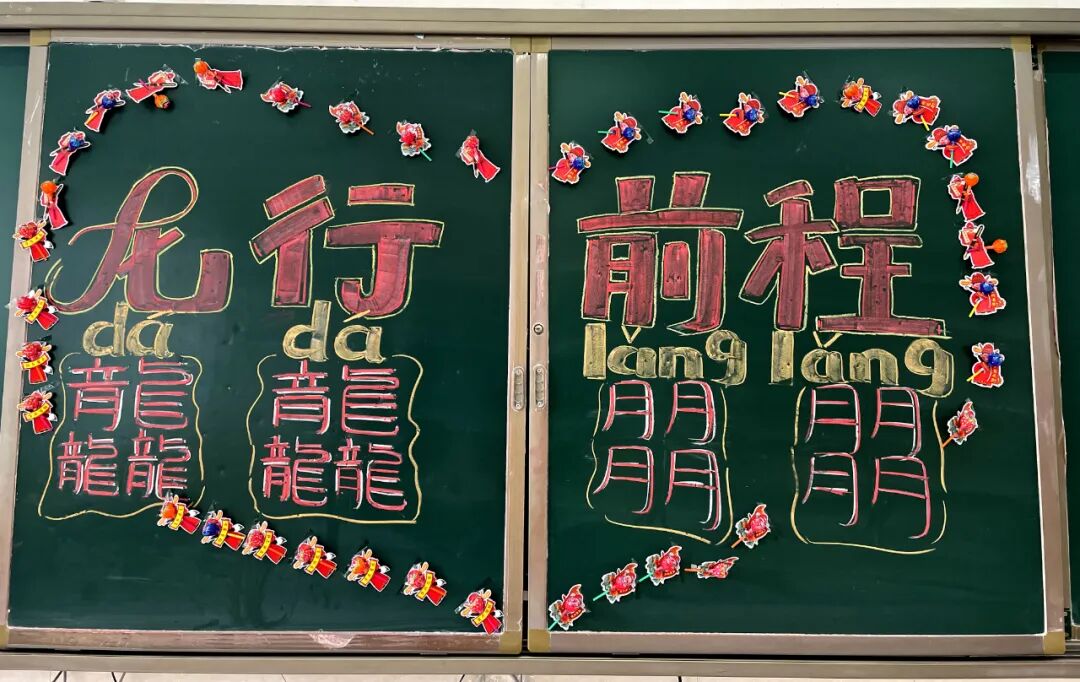 龙行
dá dá
龘龘
前程
lǎng lǎng
朤朤